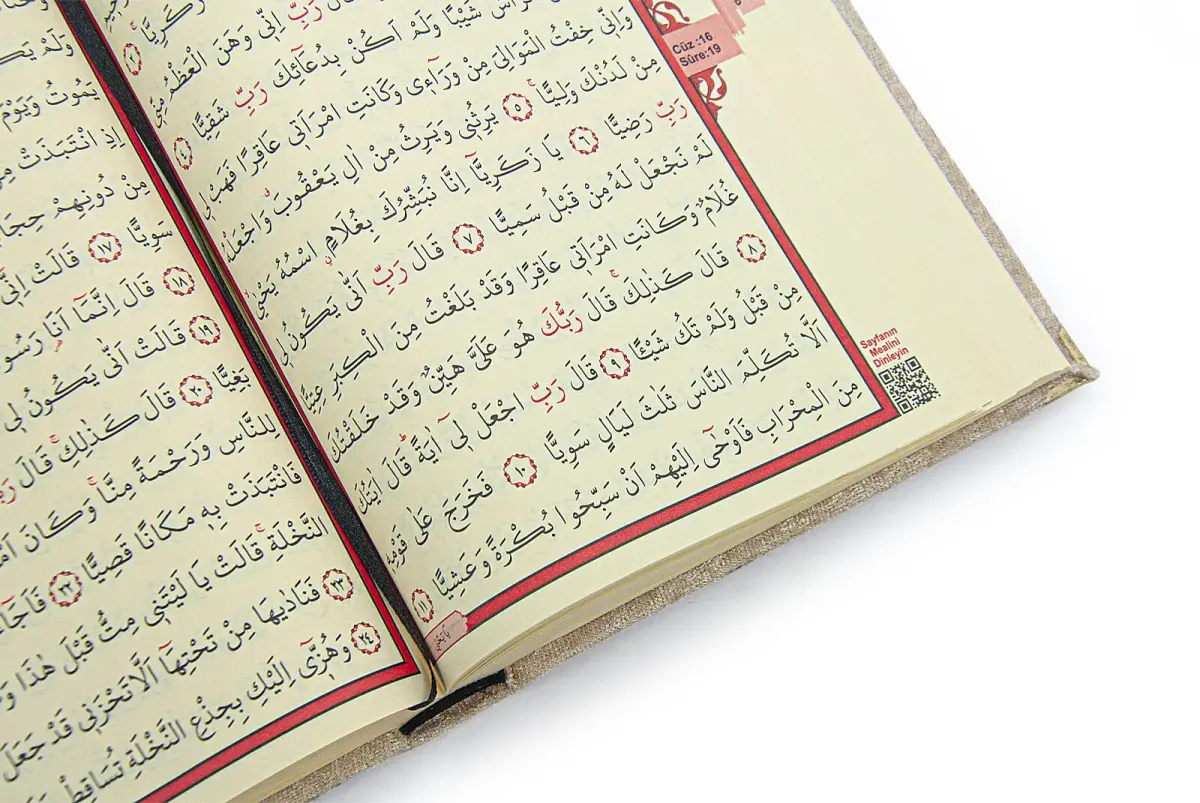 Cüz :16
Sûre:19
زَكَرِيَّا
رَبِّ اِنِّى وَهَنَ الْعَظْمُ مِنِّى
شَيْبًا وَلَمْ اَكُنْ بِدُعَٓائِكَ رَبِّ شَقِيًّا ٤
وَاِنِّى خِفْتُ الْمَوَالِىَ مِنْ وَرَٓاء۪ى وَكَانَتِ امْرَاَت۪ى عَاقِرًا فَهَبْ ل۪ى
مِنْ لَدُنْكَ وَلِيًّاۙ ٥ يَرِثُن۪ى وَيَرِثُ مِنْ اٰلِ يَعْقُوبَۗ وَاجْعَلْهُ
رَبِّ رَضِيًّا ٦ يَا زَكَرِيَّٓا اِنَّا نُبَشِّرُكَ بِغُلَامٍ اسْمُهُ يَحْيٰىۙ
لَمْ نَجْعَلْ لَهُ مِنْ قَبْلُ سَمِيًّا ٧ قَالَ رَبِّ اَنّٰى يَكُونُ ل۪ى
غُلَامٌ وَكَانَتِ امْرَاَت۪ى عَاقِرًا وَقَدْ بَلَغْتُ مِنَ الْكِبَرِ عِتِيًّا
٨ قَالَ كَذٰلِكَۚ قَالَ رَبُّكَ هُوَ عَلَىَّ هَيِّنٌ وَقَدْ خَلَقْتُكَ
مِنْ قَبْلُ وَلَمْ تَكُ شَيْـًٔا ٩ قَالَ رَبِّ اجْعَلْ ل۪ٓى اٰيَةًۜ قَالَ اٰيَتُكَ
اَلَّا تُكَلِّمَ النَّاسَ ثَلٰثَ لَيَالٍ سَوِيًّا ١٠ فَخَرَجَ عَلٰى قَوْمِه۪
مِنَ الْمِحْرَابِ فَاَوْحٰٓى اِلَيْهِمْ اَنْ سَبِّحُوا بُكْرَةً وَعَشِيًّا ١١
Sayfanın
Mealini
Dinleyin
وَلَمْ
يَمُوتُ وَيَوْمَ
اِذِ انْتَبَذَتْ
مِنْ دُونِهِمْ
سَوِيًّا ١٧ قَالَتْ اِنّ۪ٓى
١٨ قَالَ اِنَّمَٓا اَنَا
١٩ قَالَتْ اَنّٰى يَكُونُ ل۪ى
بَغِيًّا ٢٠ قَالَ كَذٰلِكِۚ قَالَ
لِلنَّاسِ وَرَحْمَةً مِنَّاۚ وَكَانَ
فَانْتَبَذَتْ بِه۪ مَكَانًا قَصِيًّا ٢٢
النَّخْلَةِۚ قَالَتْ يَا لَيْتَن۪ى مِتُّ قَبْلَ هٰذَا
٢٣ فَنَادٰيهَا مِنْ تَحْتِهَٓا اَلَّا تَحْزَن۪ى قَدْ جَعَلَ
٢٤ وَهُزّ۪ٓى اِلَيْكِ بِجِذْعِ النَّخْلَةِ تُسَاقِطْ